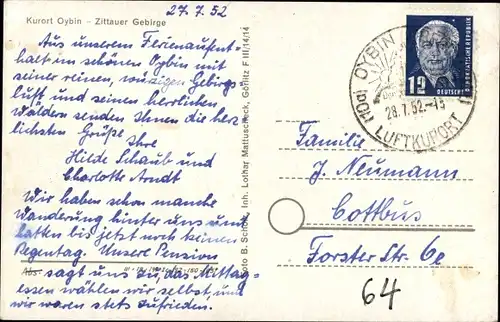 27.7.52
Kurort Oybin – Zittauer Gebirge
Aus unserem Ferienaufent-
halt im schönen Oybin mit
seiner reinen, würzigen Gebirgs-
luft und seinen herrlichen
Wäldern senden Ihnen die herz-
lichsten Grüße
Ihre
Hilde Schaub und
Charlotte Arndt
Wir haben schon manche
Wanderung hinter uns und
hatten bis jetzt noch keinen
Regentag. Unsere Pension
sagt uns zu, das Mittag-
essen wählen wir selbst, und
wir waren stets zufrieden.
Foto B. Scholz, Inh. Lothar Mattuscheck, Görlitz F III/14/14
OYBIN
28.7.52.-13
LUFTKURORT
12
DEUTSCHE
DEMOKRATISCHE REPUBLIK
Familie
J. Neumann
Cottbus
Forster Str. 6e
64